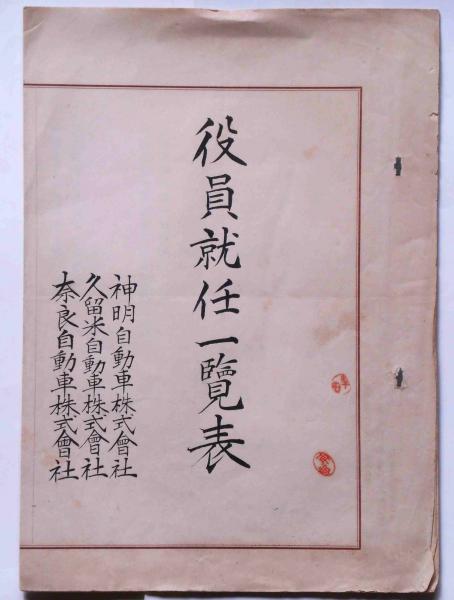 役員就任一覽表
神明自動車株式會社
久留米自動車株式會社
奈良自動車株式會社